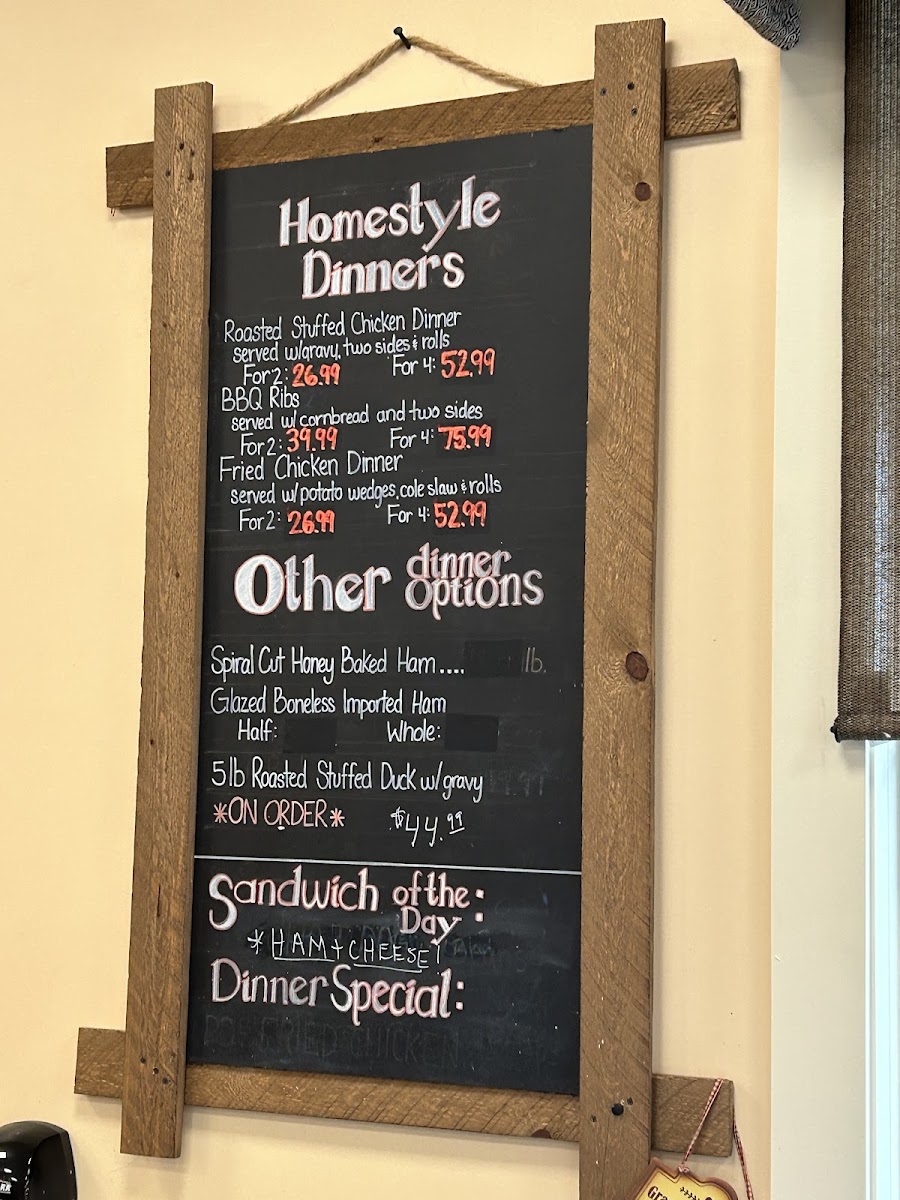 Homestyle
Dinners
Roasted Stuffed Chicken Dinner
served w/gravy, two sides & rolls
For 2: 26.99 For 4: 52.99
BBQ Ribs
served w/ cornbread and two sides
For 2: 39.99 For 4: 75.99
Fried Chicken Dinner
served w/ potato wedges, cole slaw & rolls
For 2: 26.99 For 4: 52.99
Other dinner
options
Spiral Cut Honey Baked Ham.... lb.
Glazed Boneless Imported Ham
Half: Whole:
5lb Roasted Stuffed Duck w/ gravy
*ON ORDER* $44.99
Sandwich of the
Day:
*HAM + CHEESE!
Dinner Special:
FRIED CHICKEN